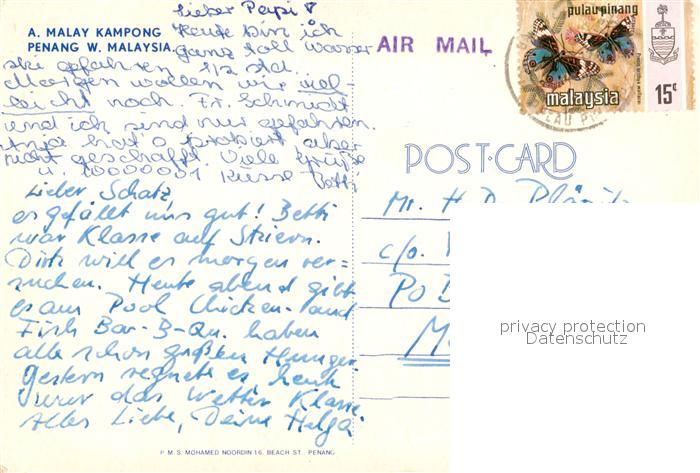 A. MALAY KAMPONG
PENANG W. MALAYSIA.
lieber Papi
heute bin ich
ganz toll Wasser
ski gefahren 1/2 Std.
Morgen wollen wir viel-
leicht noch. Fr. Schmidt
und ich sind nur gefahren.
hat probiert aber
nicht geschafft. Viele Grüße
u. 10000001 Küsse
Lieber Schatz
es gefällt uns gut! Betti
war Klasse auf Skiern.
Dirk will es morgen ver=
suchen. Heute abend gibt
es am Pool Chicken- und
Fish Bar-B-Qu. haben
alle schon großen Hunger.
Gestern regnete es heute
war das Wetter Klasse.
Alles Liebe, Deine Helga
AIR MAIL
pulau pinang
malaysia
15c
POST·CARD
Mr. H. D.
c/o.
PO B
M
privacy protection
Datenschutz
P M S. MOHAMED NOORDIN 16, BEACH ST. PENANG